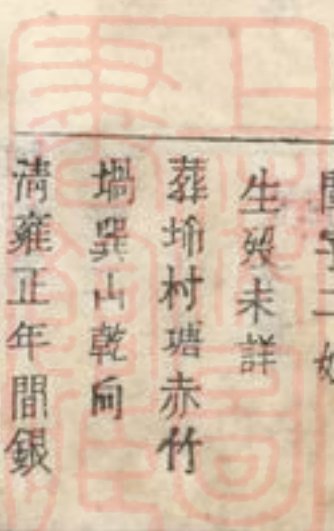 生歿未詳
葬埗村塘赤竹
塲巽山乾向
清雍正年間銀